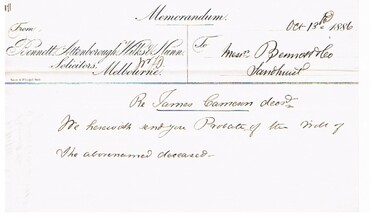 Memorandum.
Oct 13th 1886
From
To
Bennett, Attenborough, Wilks & Nunn
Solicitors.
Melbourne
Messrs Bennett & Co
Sandhurst
Re James Cameron decd.
We herewith send you Probate of the Will of
the abovenamed deceased